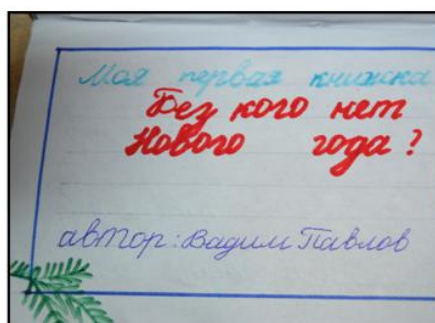 Моя первая книжка
Без кого нет
Нового года?
автор: Вадим Павлов